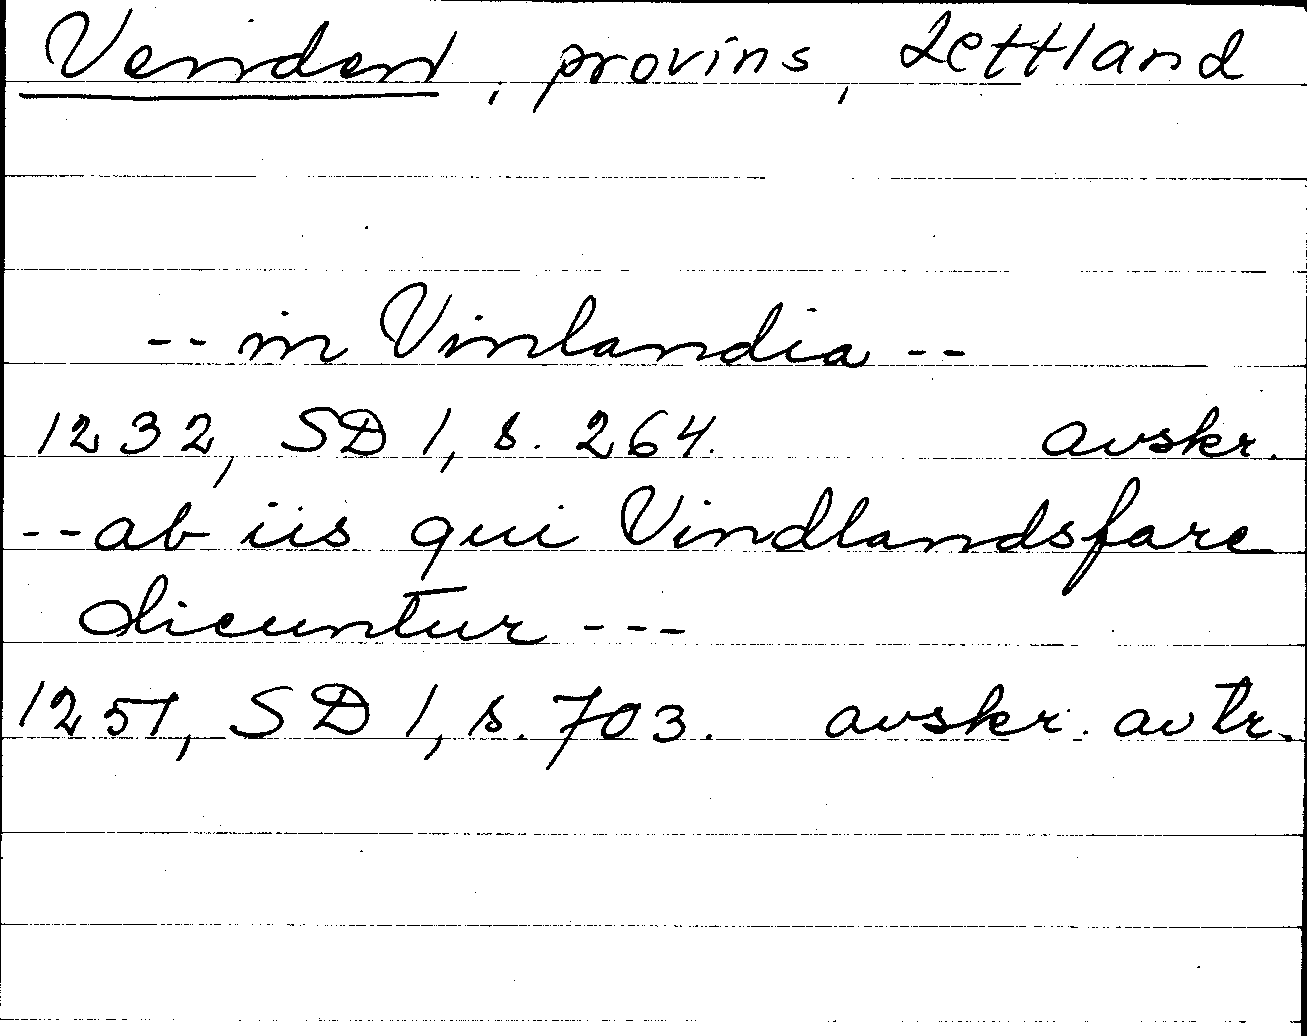 Venden, provins, Lettland
-- in Vinlandia --
1232, SD 1, s. 264. avskr.
-- ab iis qui Vindlandsfare
dicuntur ---
1251, SD 1, s. 703. avskr. av tr.